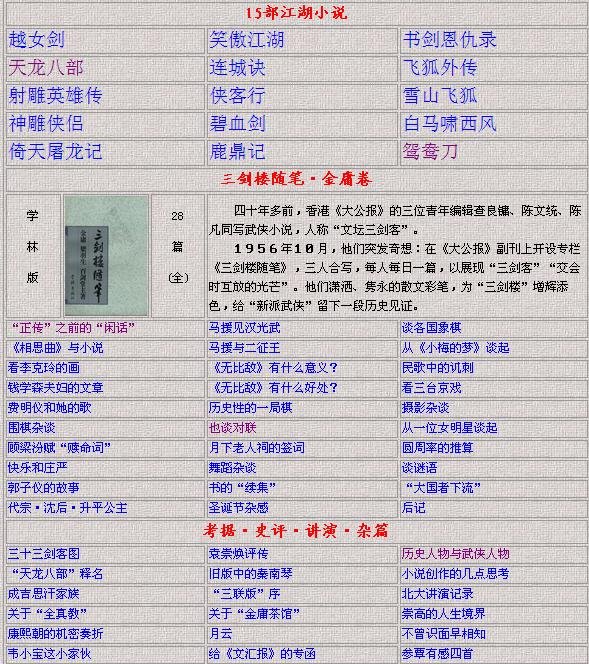 15部江湖小说
越女剑 笑傲江湖 书剑恩仇录
天龙八部 连城诀 飞狐外传
射雕英雄传 侠客行 雪山飞狐
神雕侠侣 碧血剑 白马啸西风
倚天屠龙记 鹿鼎记 鸳鸯刀
三剑楼随笔·金庸卷
学林版
三剑楼随笔
金庸 梁羽生 百剑堂主著
28篇(全)
四十年多前，香港《大公报》的三位青年编辑查良镛、陈文统、陈
凡同写武侠小说，人称“文坛三剑客”。
1956年10月，他们突发奇想：在《大公报》副刊上开设专栏
《三剑楼随笔》，三人合写，每人每日一篇，以展现“三剑客”“交会
时互放的光芒”。他们潇洒、隽永的散文彩笔，为“三剑楼”增辉添
色，给“新派武侠”留下一段历史见证。
“正传”之前的“闲话” 马援见汉光武 谈各国象棋
《相思曲》与小说 马援与二征王 从《小梅的梦》谈起
看李克玲的画 《无比敌》有什么意义？ 民歌中的讥刺
钱学森夫妇的文章 《无比敌》有什么好处？ 看三台京戏
费明仪和她的歌 历史性的一局棋 摄影杂谈
围棋杂谈 也谈对联 从一位女明星谈起
顾梁汾赋“赎命词” 月下老人祠的签词 圆周率的推算
快乐和庄严 舞蹈杂谈 谈谜语
郭子仪的故事 书的“续集” “大国者下流”
代宗·沈后·升平公主 圣诞节杂感 后记
考据·史评·讲演·杂篇
三十三剑客图 袁崇焕评传 历史人物与武侠人物
“天龙八部”释名 旧版中的秦南琴 小说创作的几点思考
成吉思汗家族 “三联版”序 北大讲演记录
关于“全真教” 关于“金庸茶馆” 崇高的人生境界
康熙朝的机密奏折 月云 不曾识面早相知
韦小宝这小家伙 给《文汇报》的专函 参覃有感四首